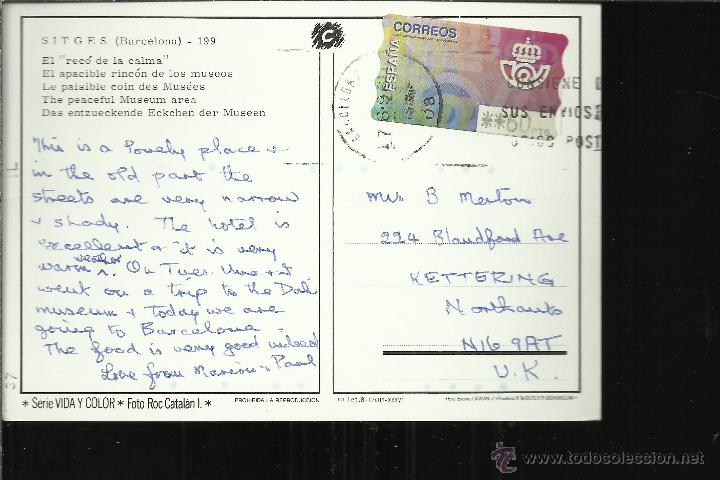 SITGES (Barcelona) - 199
El "recó de la calma"
El apacible rincón de los museos
Le paisible coin des Musées
The peaceful Museum area
Das entzueckende Eckchen der Museen
This is a lovely place +
in the old part the
streets are very narrow
+ shady. The hotel is
excellent + it is very
warm weather. On Tues. Una + I
went on a trip to the Dali
museum + today we are
going to Barcelona.
The food is very good indeed
Love from Marion + Paul
C
CORREOS
ESPAÑA
**60 PTS
BARCELONA
08
SUS ENVIOS
POST
Mrs B Merton
224 Blandford Ave
KETTERING
Northants
N16 9AT
U.K.
37
* Serie VIDA Y COLOR * Foto Roc Catalán I. *
PROHIBIDA LA REPRODUCCION
www.todocoleccion.net